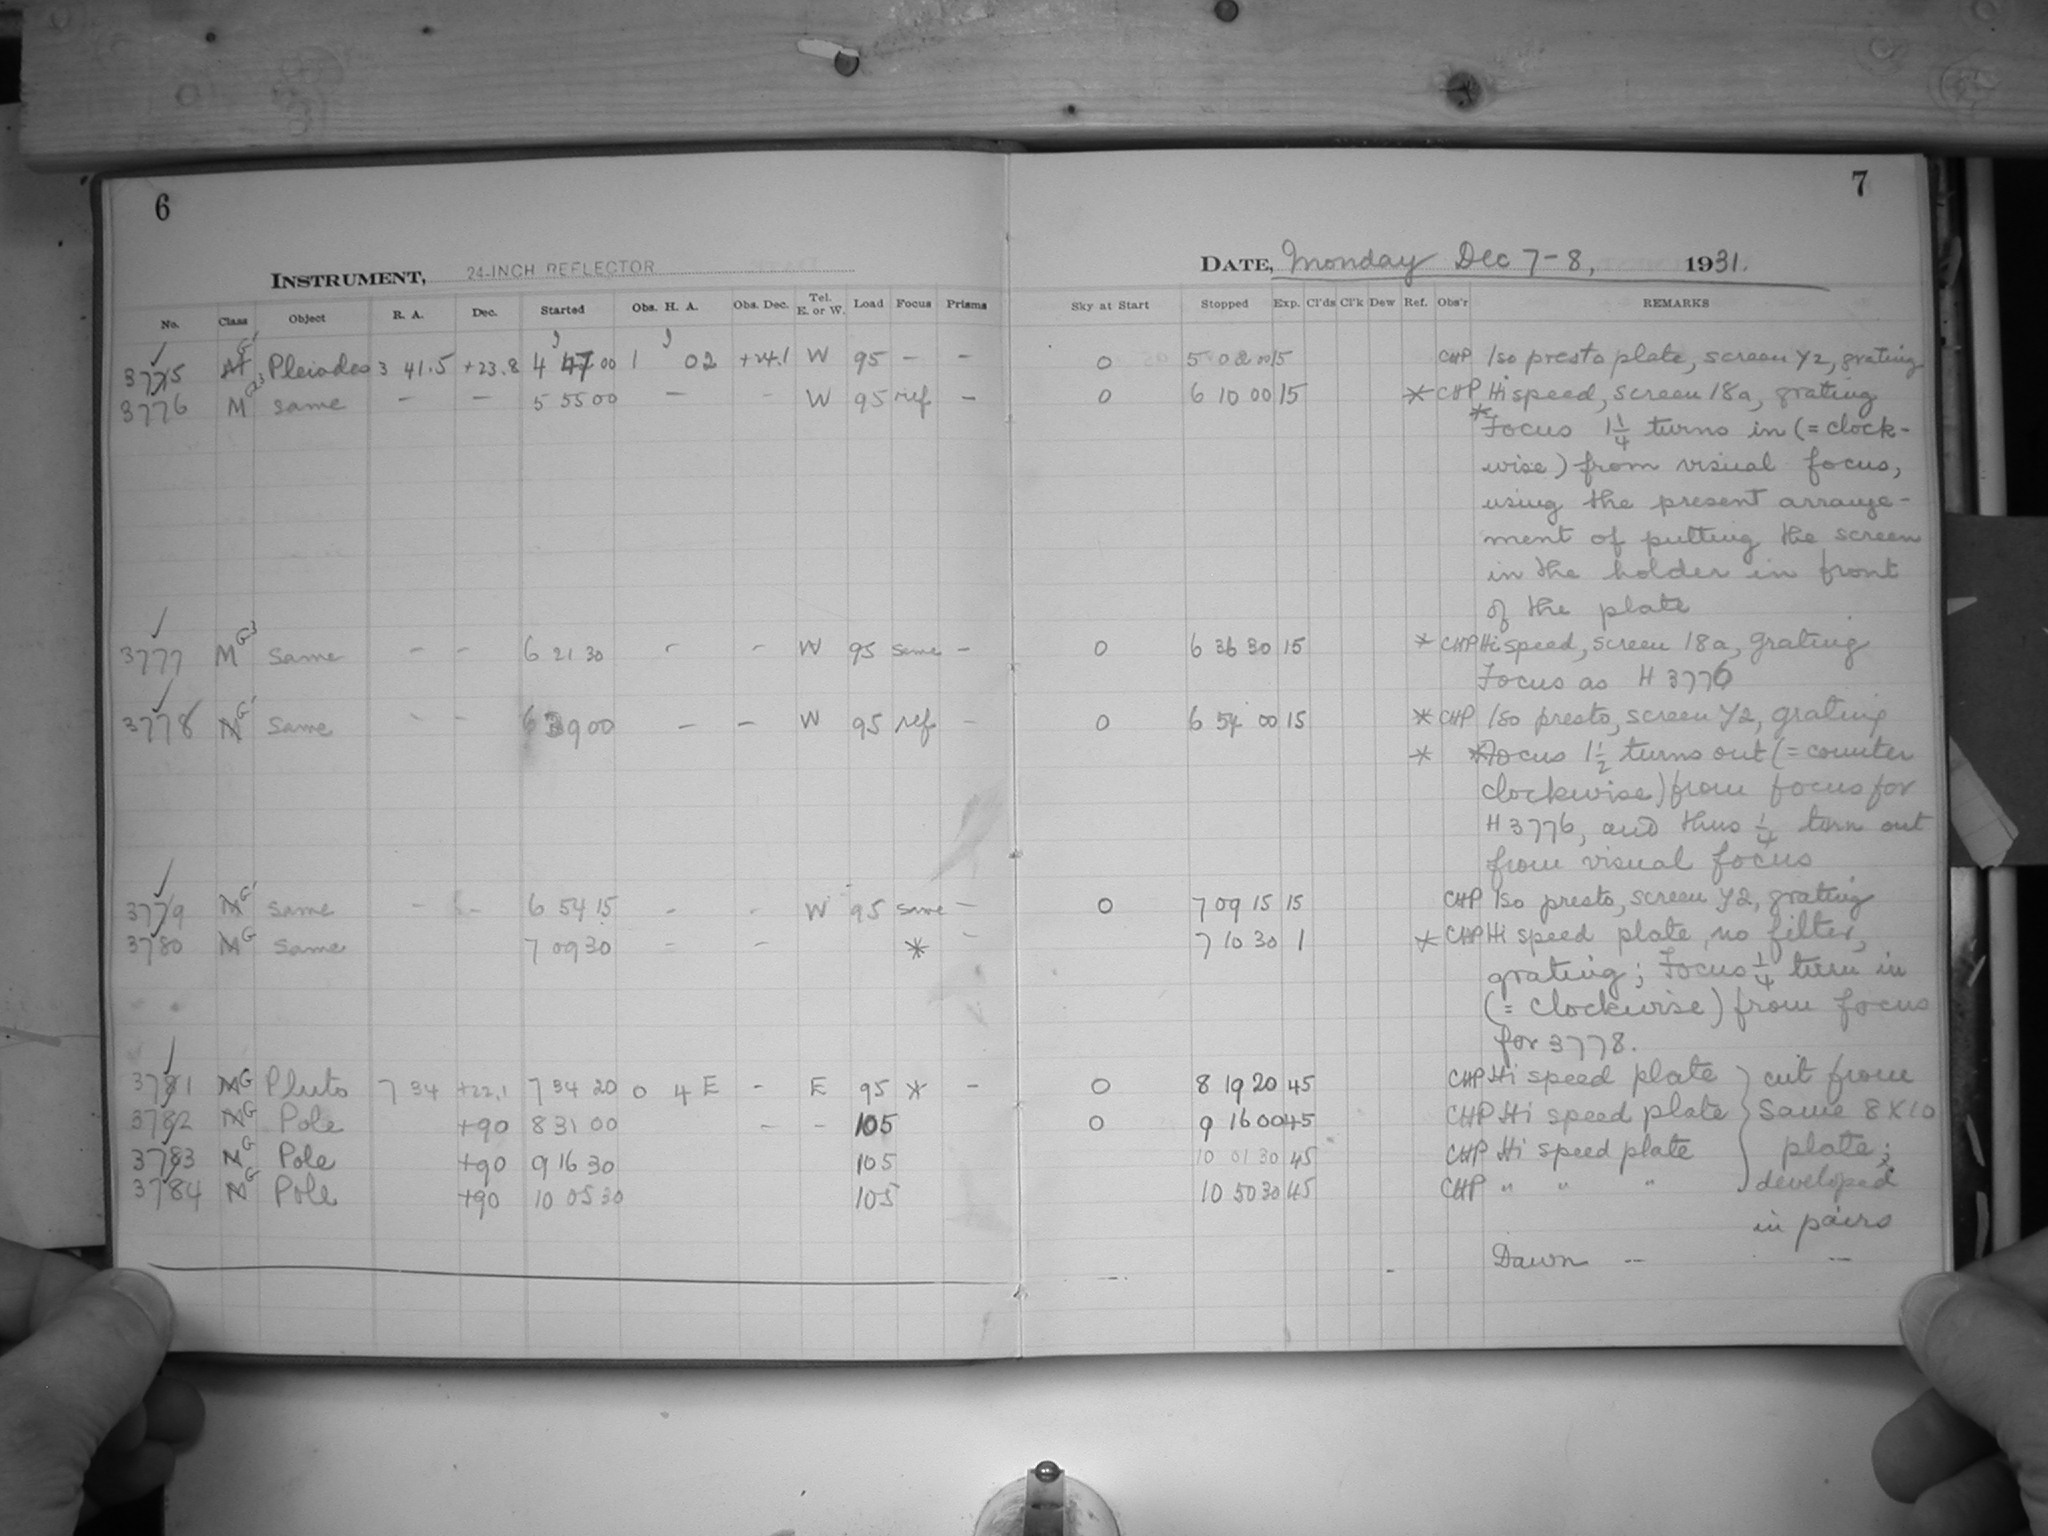 6
INSTRUMENT, 24-INCH REFLECTOR
No. Class Object R. A. Dec. Started Obs. H. A. Obs. Dec. Tel. E. or W. Load Focus Prisms
3775 Pleiades 3 41.5 +23.8 4 47 00 1 02 +24.1 W 95 – –
3776 M G3 same – – 5 55 00 – – W 95 ref –
3777 M G3 same – – 6 21 30 – – W 95 same –
3778 M G' same – – 6 39 00 – – W 95 ref –
3779 M G' same – – 6 54 15 – – W 95 same –
3780 M G same 7 09 30 – – * –
3781 M G Pluto 7 34 +22.1 7 34 20 0 4 E – E 95 * –
3782 M G Pole +90 8 31 00 – – 105
3783 M G Pole +90 9 16 30 105
3784 M G Pole +90 10 05 30 105
7
DATE, Monday Dec 7-8, 1931.
Sky at Start Stopped Exp. Cl'ds Cl'k Dew Ref. Obs'r REMARKS
0 5 02 00 15 CHP Iso presto plate, screen Y2, grating
0 6 10 00 15 * CHP Hi speed, screen 18a, grating
* Focus 1 1/4 turns in (= clock-
wise) from visual focus,
using the present arrange-
ment of putting the screen
in the holder in front
of the plate
0 6 36 30 15 * CHP Hi speed, screen 18a, grating
Focus as H 3776
0 6 54 00 15 * CHP Iso presto, screen Y2, grating
* * Focus 1 1/2 turns out (= counter
clockwise) from focus for
H 3776, and thus 1/4 turn out
from visual focus
0 7 09 15 15 CHP Iso presto, screen Y2, grating
7 10 30 1 * CHP Hi speed plate, no filter,
grating; Focus 1/4 turn in
(= clockwise) from focus
for 3778.
0 8 19 20 45 CHP Hi speed plate } cut from
0 9 16 00 45 CHP Hi speed plate } same 8 X 10
10 01 30 45 CHP Hi speed plate } plate;
10 50 30 45 CHP " " " } developed
in pairs
Dawn -- --